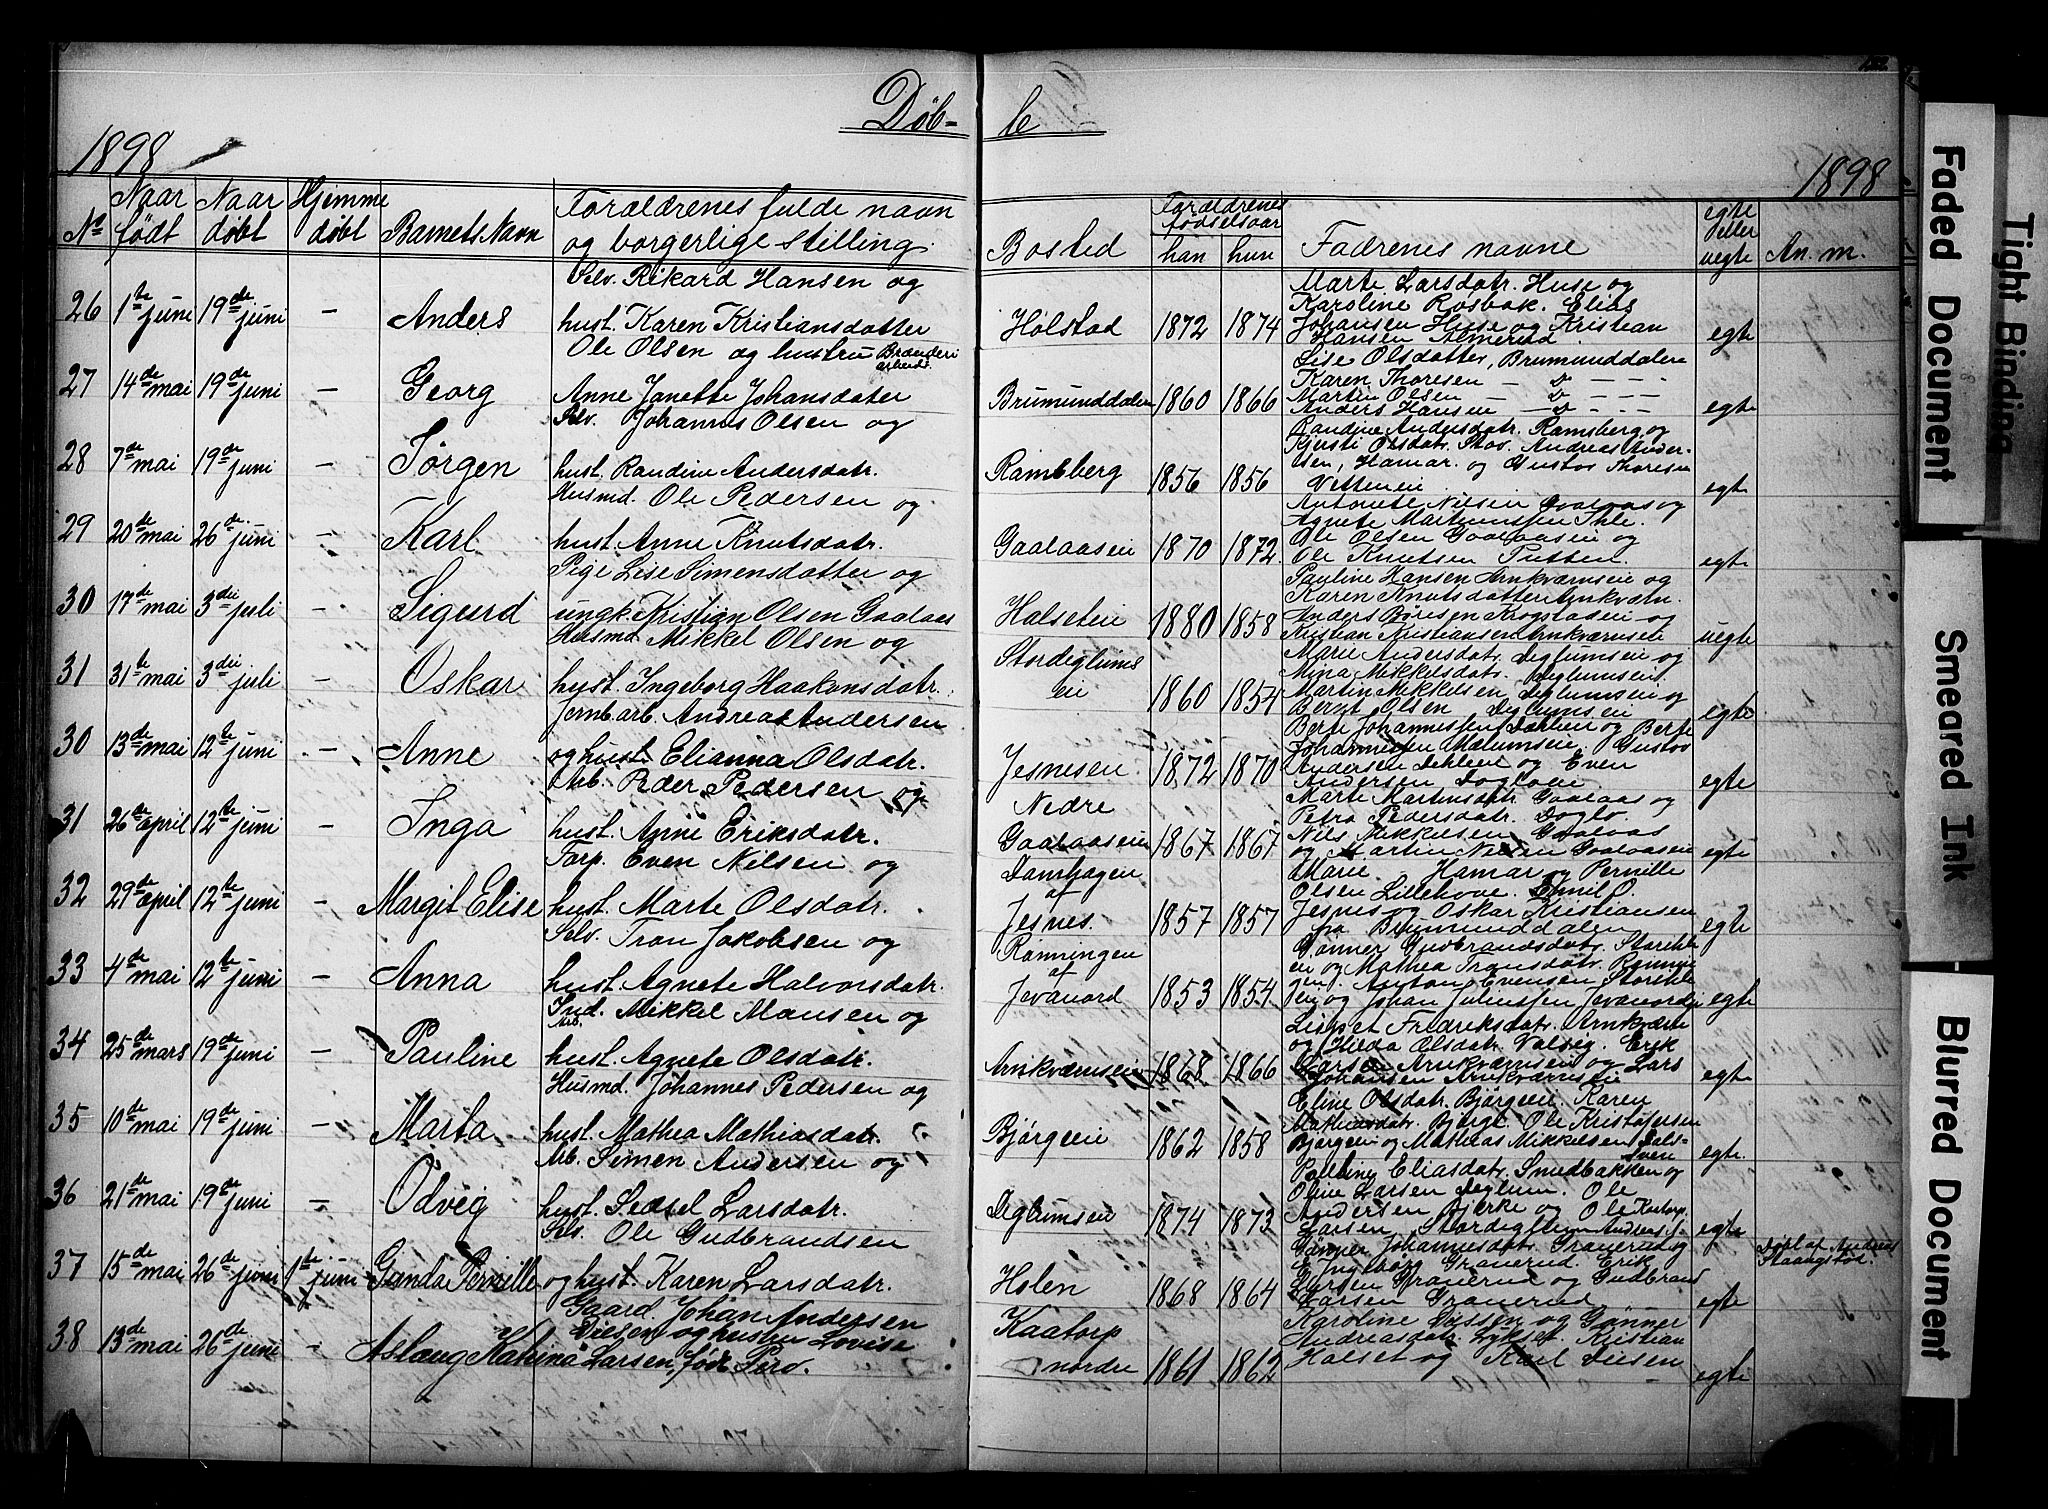 Døb- te
1898 1898
No Naar født Naar døbt Hjemme døbt Barnets Navn Forældrenes fulde navn og borgerlige stilling. Bosted Forældrenes fødselsaar han hun Fadrenes navne egte eller uegte An. m.
Selv. Rikard Hansen og Marte Larsdatr. Huse og
Karoline Rosbak. Elias
26 1te juni 19de juni - Anders hust. Karen Kristiansdatter Hølstad 1872 1874 Johansen Huse og Kristian
Hansen Almerud egte
Ole Olsen og hustru Brænderi arbeid. Lise Olsdatter, Brumunddalen
Karen Thoresen - D - - -
27 14de mai 19de juni - Georg Anne Janette Johansdater Brumunddalen 1860 1866 Martin Olsen - D - - -
Anders Hansen - D - - - egte
Selv. Johannes Olsen og Randine Andersdatr. Ramsberg og
Kjersti Olsdatr. Stos. Andreas Ander-
28 7de mai 19de juni - Jørgen hust. Randine Andersdatr. Ramsberg 1856 1856 sen, Hamar. og Gustav Thoresen
egte
Husmd. Ole Pedersen og Antonete Nilsen Gaalaas og
Agnete Ihle.
29 20de mai 26de juni - Karl hust. Anne Knutsdatr. Gaalaasen 1870 1872. Ole Olsen Gaalaasen og
Ole Knutsen Putten. egte
Pige Lise Simensdatter og Pauline Hansen Arnkværnseie og
Karen Knutsdatter Arnkværn.
30 17de mai 3die juli - Sigurd ungk. Kristian Olsen Gaalaas Halseteie 1880 1858 Anders Børesen Krogstadeie og
Kristian Kristiansen Arnkværnseie uegte
Husmd. Mikkel Olsen og Stordeglums Marie Andersdatr. Deglumseie og
Mina Mikkelsdatr. Deglumseie.
31 31te mai 3die juli - Oskar hust. Ingeborg Haakonsdatr. eie 1860 1854 Martin Mikkelsen Deglumseie og
Bernt Olsen Deglumseie egte
Jernb.arb. Andreas Andersen Berte Dæhleie og Berte
30 13de mai 12te juni - Anne og hust. Elianna Olsdatr. Jesneseie. 1872 1870 Gustav
Andersen Dehleie og Even
Andersen egte
Arb. Peder Pedersen og Nedre Marte Martinsdatr. Gaalaas og
Petra Pedersdatr. Doglo.
31 26de april 12te juni - Inga hust. Anne Eriksdatr. Gaalaaseie 1867 1867 Nils Mikkelsen Gaalaas
og Martin Nilsen Gaalaasen egte
Forp. Even Nilsen og Damhagen Marie. Hamar og Pernille
af Olsen Lillehove. Emil O.
32 29de april 12te juni - Margit Elise hust. Marte Olsdatr. Jesnes. 1857 1857 Jesnes og Oskar Kristiansen
fra Brumunddalen egte
Selv. Tron Jakobsen og Rønningen Gønner Gudbrandsdatr.
af og Mathea Tronsdatr.
33 4de mai 12te juni - Anna hust. Agnete Halvorsdatr. Jevanord 1853 1854. Anton Evensen
og Johan egte
Ind. Arb. Mikkel Mansen og Lispet Fredriksdatr. Arnkværn
og Hilda Olsdatr. Valsig. Erik
34 25de mars 19de juni - Pauline hust. Agnete Olsdatr. Arnkværnseie 1868 1866 Larsen Arnkværnseie og Lars
Johansen Arnkværnseie egte
Husmd. Johannes Pedersen og Eline Olsdatr. Bjørgeeie. Karen
35 10de mai 19de juni - Marta hust. Mathea Mathiasdatr. Bjørgeeie 1862 1858 Mathiasdatr. Bjørge. Ole Kristofersen
Bjørgeeie og Mathias Mikkelsen egte.
Arb. Simen Andersen og Eliasdatr. Smedbakken og
Oline Larsen Deglum. Ole
36 21de mai 19de juni - Odvig hust. Sedsel Larsdatr. Deglumseie 1874 1873 Andersen Bjerke og Ole
Larsen Stordeglum egte
Selv. Ole Gudbrandsen Gønner Johannesdatr. Granerud og
37 15de mai 26de juni 1te juni Ganda Pernille og hust. Karen Larsdatr. Holen 1868 1864 Ingeborg Granerud. Erik
Larsen Granerud og Gudbrand
Larsen Granerud egte Døbt af Andreas Staangstød.
Gaard. Johan Andersen Kaatorp Karoline og Gønner
Diesen og hustru Lovise Andreasdatr. Lykset. Kristian
38 13de mai 26de juni - Aslaug Katrina Larsen født nordre 1861 1862 Halset og Karl Diesen egte
Tight Binding
Faded Document
Smeared Ink
Blurred Document